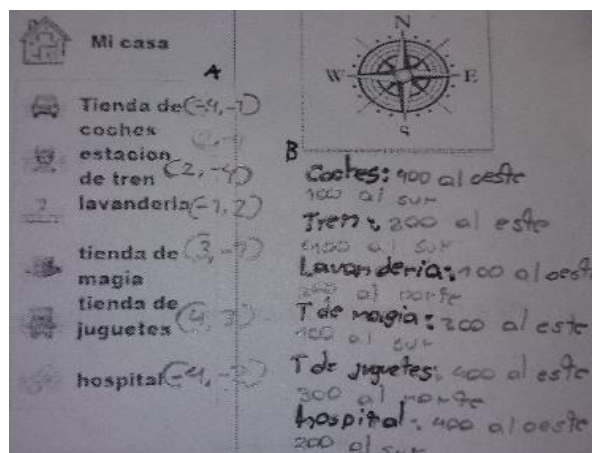 Mi casa
A
Tienda de (-4,-1)
coches
estacion
de tren (2,-4)
lavanderia (-1,2)
tienda de (3,-1)
magia
tienda de
juguetes (4,3)
hospital (-4,-2)
N
W E
S
B
Coches: 400 al oeste
100 al sur
Tren: 200 al este
400 al sur
Lavanderia: 100 al oest
200 al norte
T de magia: 200 al este
100 al sur
T de juguetes: 400 al este
300 al norte
hospital: 400 al oeste
200 al sur